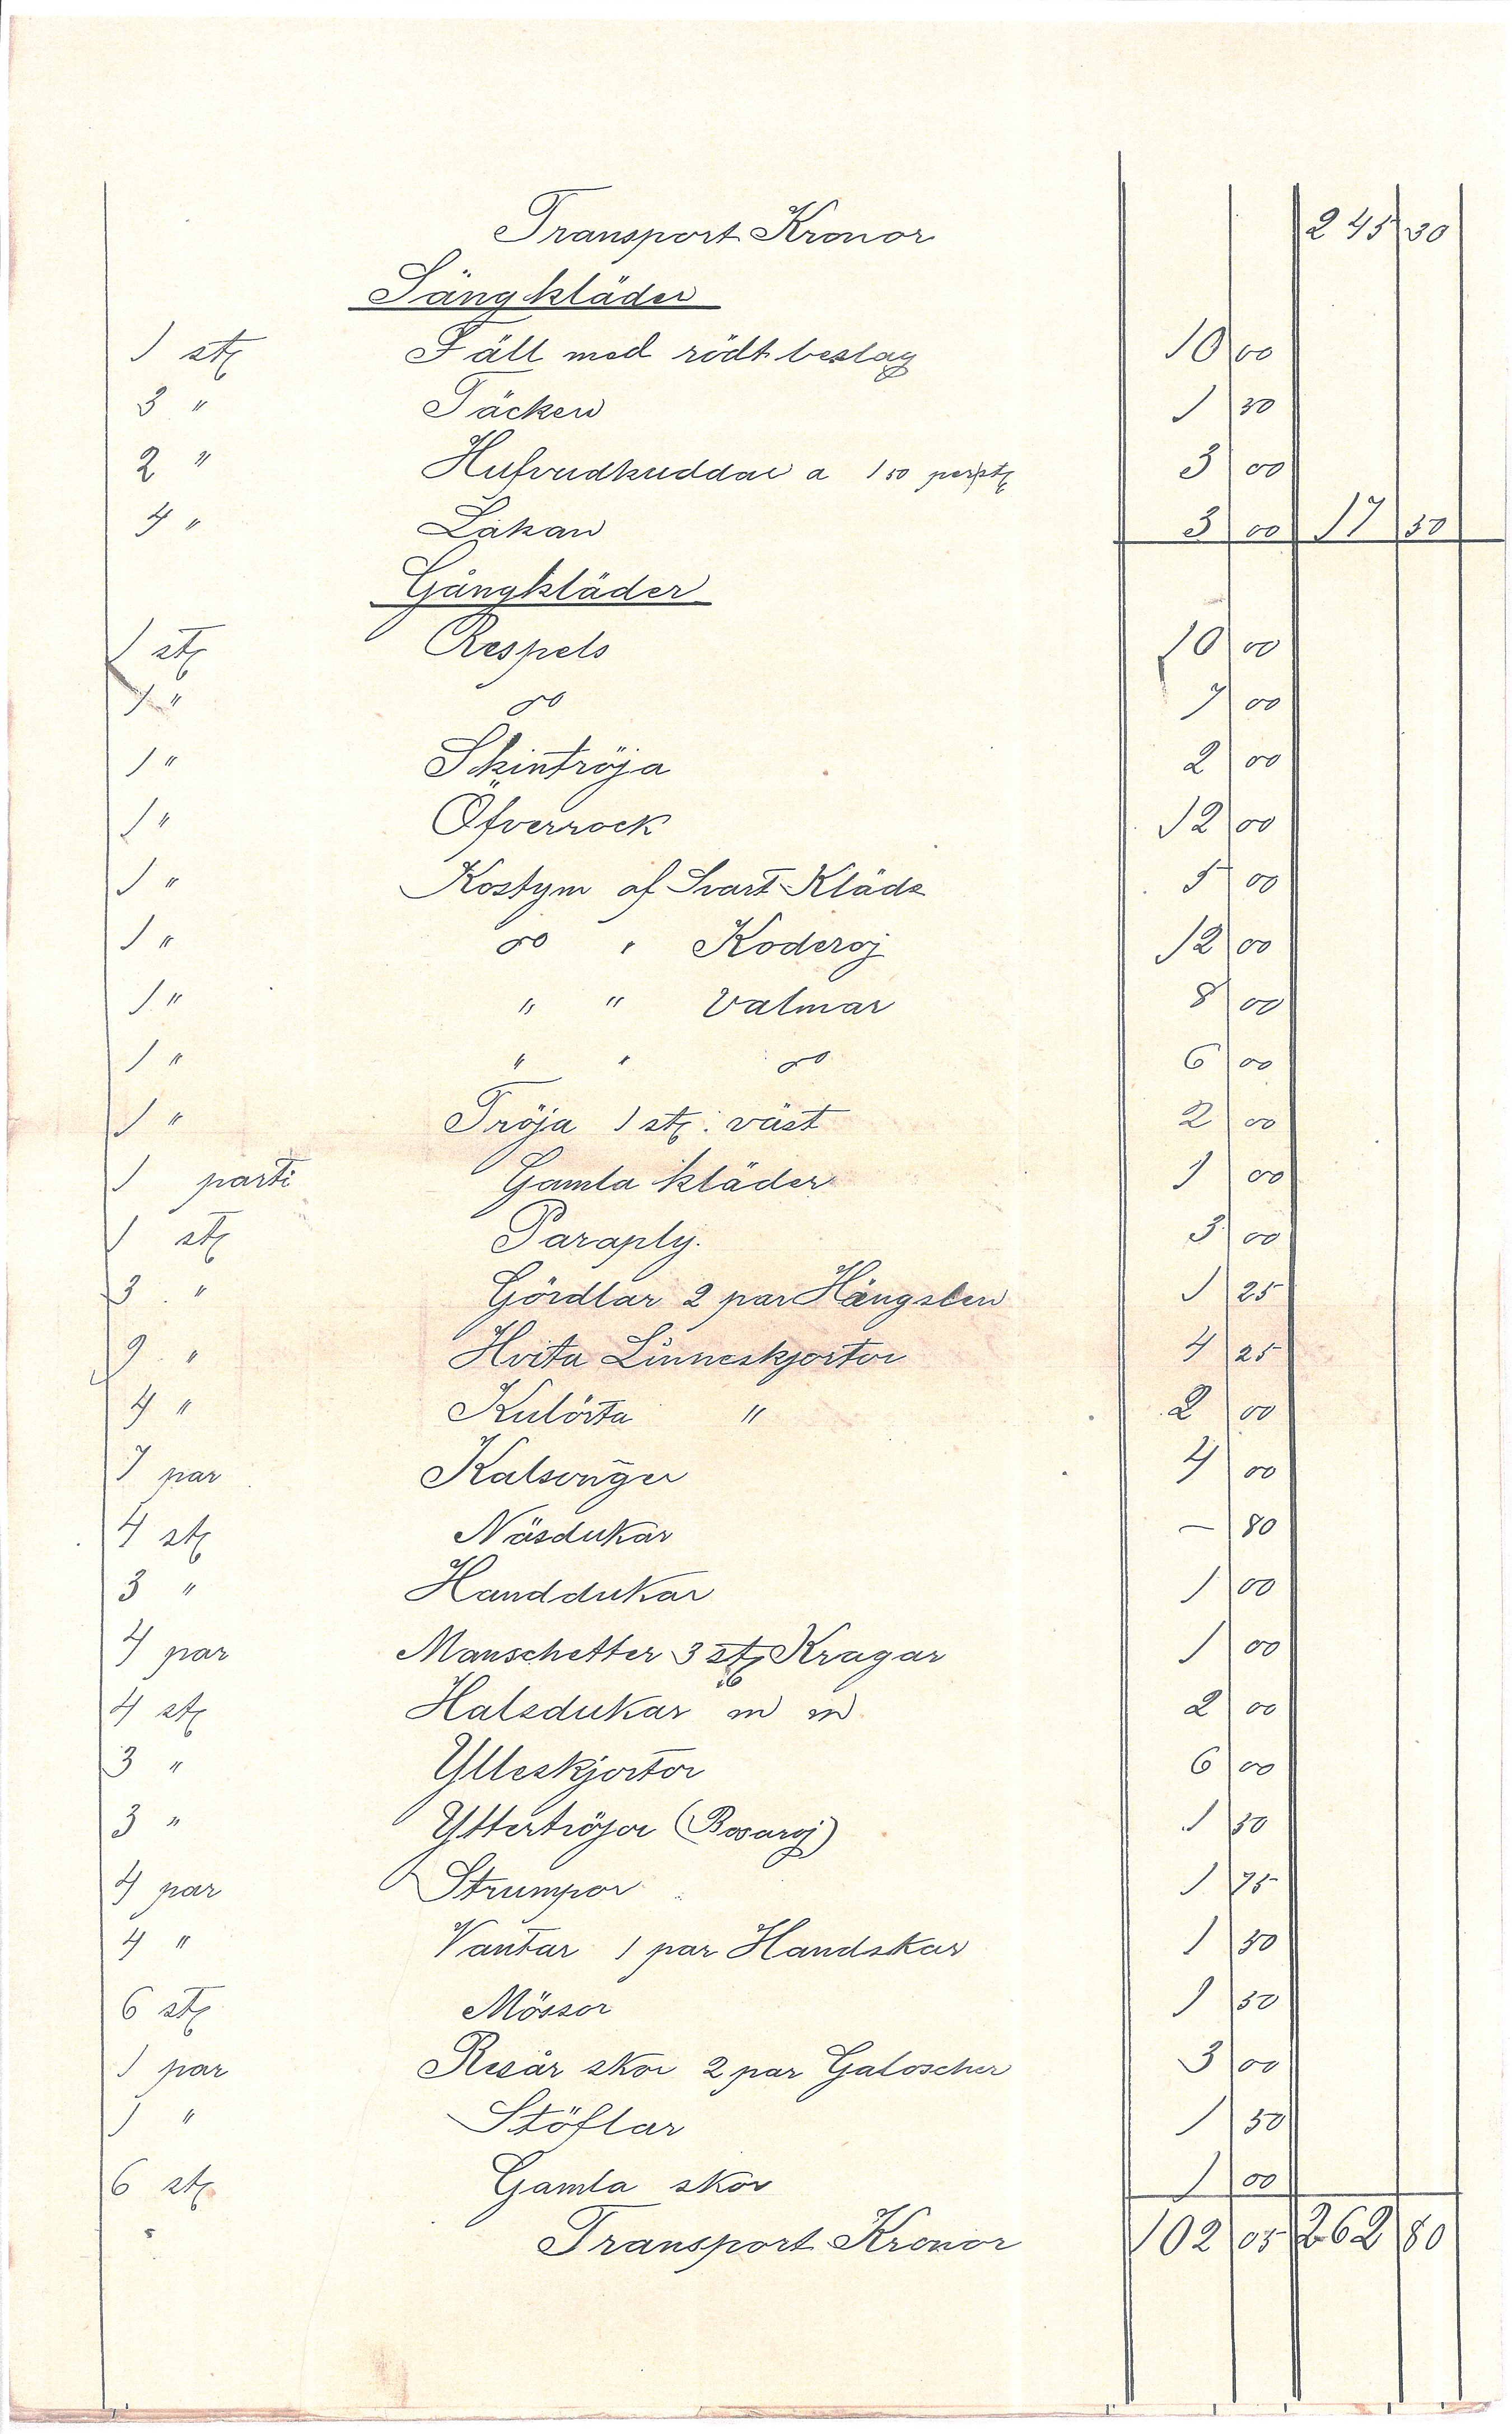 Transport Kronor 245 30
Sängkläder
1 st Fäll med rödt beslag 10 00
3 " Täcken 1 50
2 " Hufvudkuddar a 1 50 per st 3 00
4 " Lakan 3 00 17 50
Gångkläder
1 st Respels 10 00
1 " do 7 00
1 " Skintröja 2 00
1 " Öfverrock 12 00
1 " Kostym af Svart Kläde 5 00
1 " do " Koderoj 12 00
1 " " " Valmar 8 00
1 " " " do 6 00
1 " Tröja 1 st. väst 2 00
1 parti Gamla kläder 1 00
1 st Paraply. 3 00
3 " Gördlar 2 par Hängslen 1 25
9 " Hvita Linneskjortor 4 25
4 " Kulörta " 2 00
7 par Kalsonger 4 00
4 st Näsdukar — 80
3 " Handdukar 1 00
4 par Manschetter 3 st Kragar 1 00
4 st Halsdukar m m 2 00
3 " Ylleskjortor 6 00
3 " Yttertröjor (Bosaroj) 1 50
4 par Strumpor 1 75
4 " Vantar 1 par Handskar 1 50
6 st Mössor 1 50
1 par Resår skor 2 par Galoscher 3 00
1 " Stöflar 1 50
6 st Gamla skor 1 00
Transport Kronor 102 05 262 80